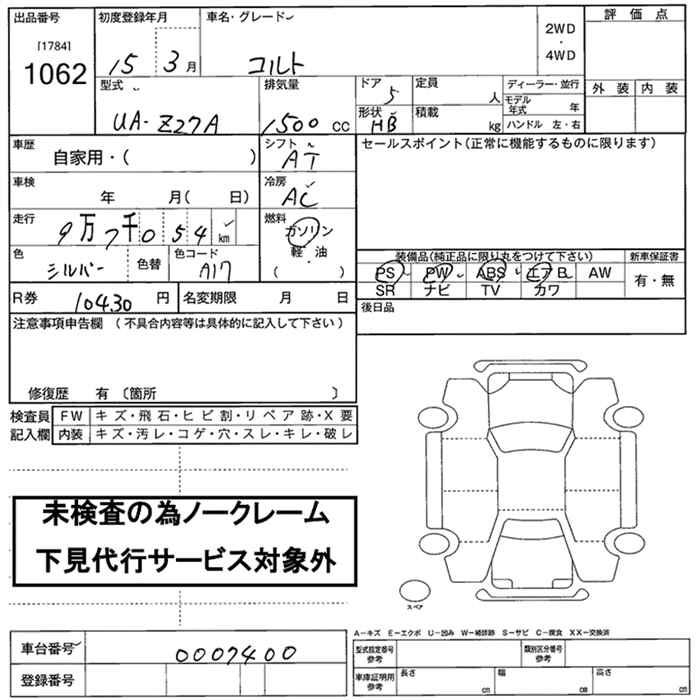 出品番号
[1784]
1062
初度登録年月
15 3月
車名・グレード
コルト
2WD
・
4WD
評価点
外装 内装
型式
UA-Z27A
排気量
1500 cc
ドア
5
形状
HB
定員
人
積載
kg
ディーラー・並行
モデル年式 年
ハンドル 左・右
車歴
自家用・( )
シフト
AT
セールスポイント(正常に機能するものに限ります)
車検
年 月( 日)
冷房
AC
走行
9万7千054km
燃料
ガソリン
軽油
( )
色
シルバー
色替
色コード
A17
装備品(純正品に限り丸をつけて下さい)
PS PW ABS エアB AW
SR ナビ TV カワ
新車保証書
有・無
R券 10430円
名変期限 月 日
後日品
注意事項申告欄 (不具合内容等は具体的に記入して下さい)
修復歴 有 〔箇所 〕
検査員
記入欄
FW キズ・飛石・ヒビ割・リペア跡・X要
内装 キズ・汚レ・コゲ・穴・スレ・キレ・破レ
未検査の為ノークレーム
下見代行サービス対象外
スペア
A-キズ E-エクボ U-凹み W-補修跡 S-サビ C-腐食 XX-交換済
車台番号 0007400
登録番号
型式指定番号
参考
類別区分番号
参考
車庫証明用
参考
長さ cm
幅 cm
高さ cm